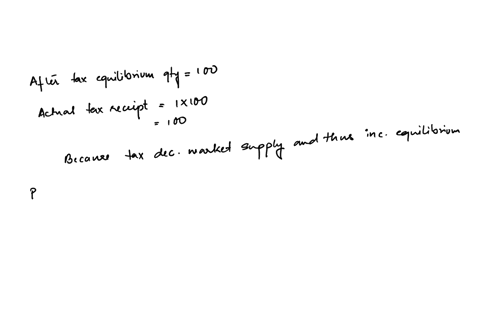 After tax equilibrium qty = 100
Actual tax receipt = 1×100
= 100
Because tax dec. market supply and thus inc. equilibrium
P